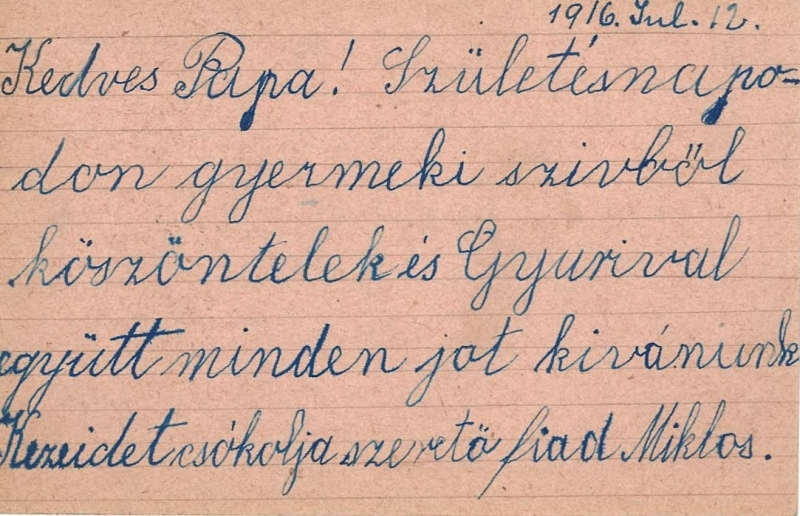 1916. Jul. 12.
Kedves Papa! Születésnapo-
don gyermeki szivből
köszöntelek és Gyurival
együtt minden jot kivánunk
Kezeidet csókolja szerető fiad Miklos.